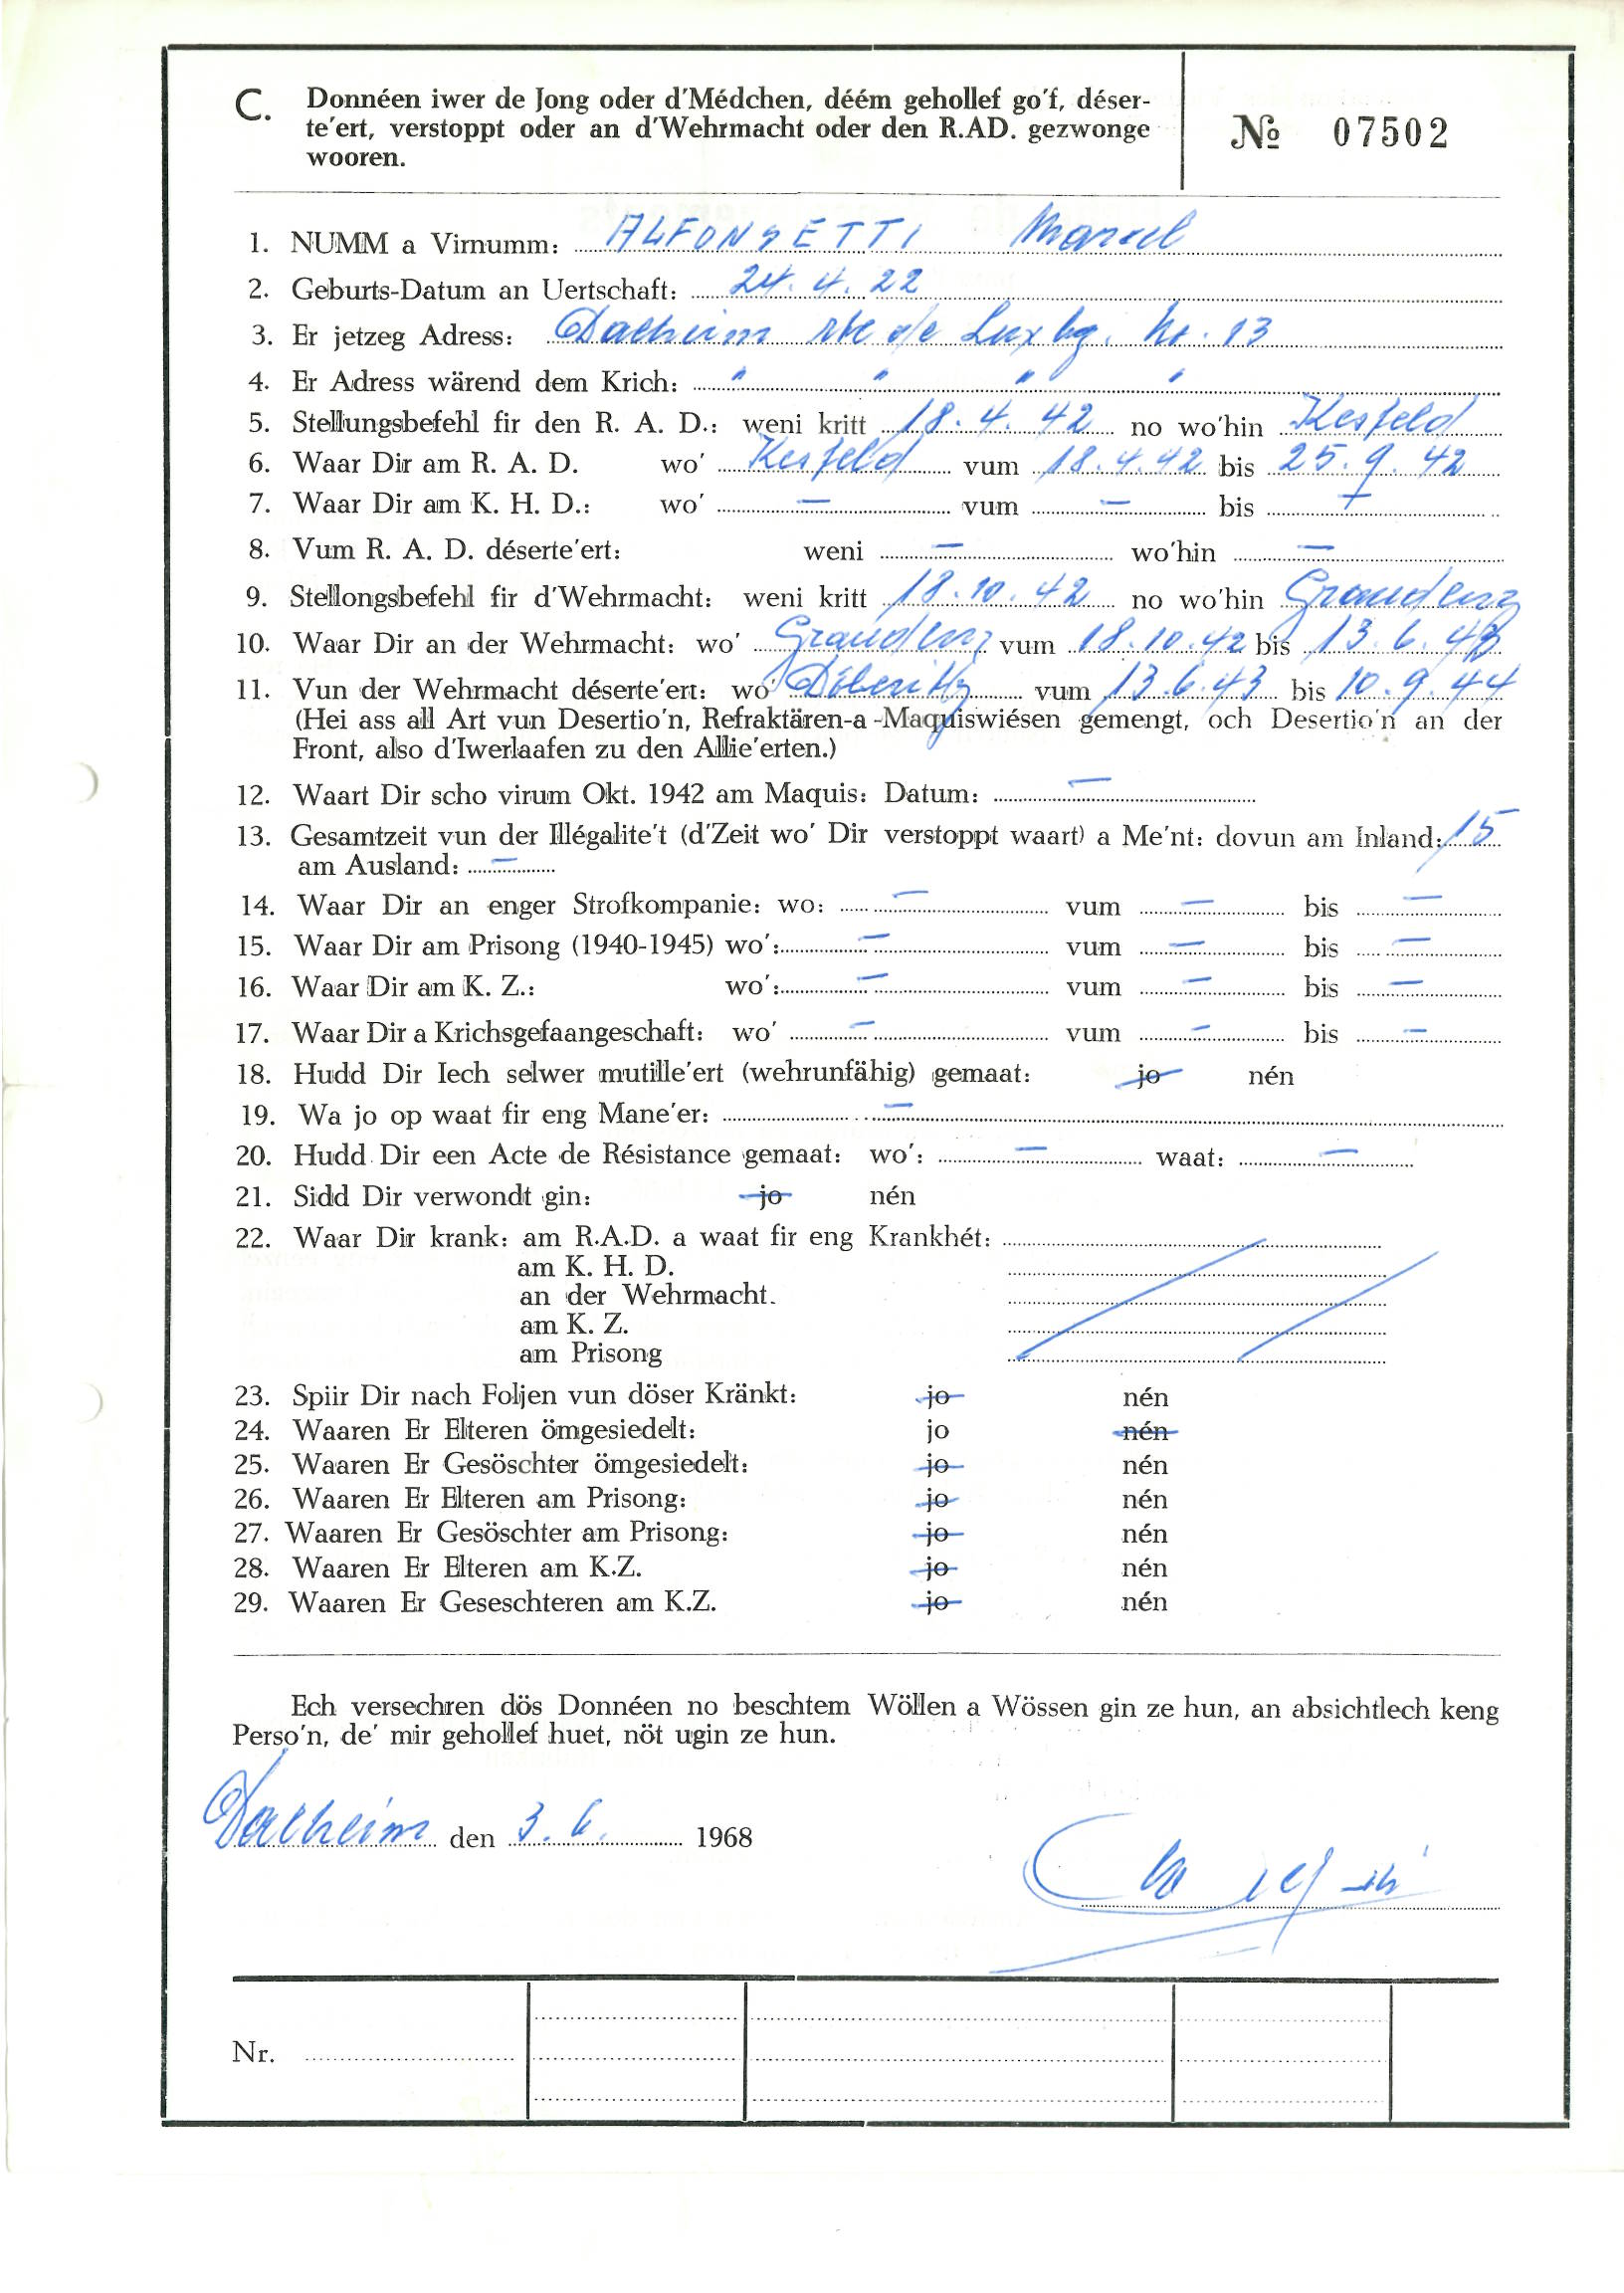 C. Donnéen iwer de Jong oder d'Médchen, déém gehollef go'f, déser-
te'ert, verstoppt oder an d'Wehrmacht oder den R.AD. gezwonge
wooren.
№ 07502
1. NUMM a Virnumm: ALFONSETTI Marcel
2. Geburts-Datum an Uertschaft: 24. 4. 22
3. Er jetzeg Adress: Dalheim rte de Luxbg. No. 13
4. Er Adress wärend dem Krich: " " " "
5. Stellungsbefehl fir den R. A. D.: weni kritt 18. 4. 42 no wo'hin Kesfeld
6. Waar Dir am R. A. D. wo' Kesfeld vum 18.4.42 bis 25. 9. 42
7. Waar Dir am K. H. D.: wo' — vum — bis —
8. Vum R. A. D. déserte'ert: weni — wo'hin —
9. Stellongsbefehl fir d'Wehrmacht: weni kritt 18.10.42 no wo'hin Graudenz
10. Waar Dir an der Wehrmacht: wo' Graudenz vum 18.10.42 bis 13. 6. 43
11. Vun der Wehrmacht déserte'ert: wo' Döberitz vum 13.6.43 bis 10. 9. 44
(Hei ass all Art vun Desertio'n, Refraktären-a-Maquiswiésen gemengt, och Desertio'n an der
Front, also d'Iwerlaafen zu den Allie'erten.)
12. Waart Dir scho virum Okt. 1942 am Maquis: Datum: —
13. Gesamtzeit vun der Illégalite't (d'Zeit wo' Dir verstoppt waart) a Me'nt: dovun am Inland: 15
am Ausland: —
14. Waar Dir an enger Strofkompanie: wo: — vum — bis —
15. Waar Dir am Prisong (1940-1945) wo': — vum — bis —
16. Waar Dir am K. Z.: wo': — vum — bis —
17. Waar Dir a Krichsgefaangeschaft: wo' — vum — bis —
18. Hudd Dir Iech selwer mutille'ert (wehrunfähig) gemaat: jo nén
19. Wa jo op waat fir eng Mane'er: —
20. Hudd Dir een Acte de Résistance gemaat: wo': — waat: —
21. Sidd Dir verwondt gin: jo nén
22. Waar Dir krank: am R.A.D. a waat fir eng Krankhét:
am K. H. D.
an der Wehrmacht.
am K. Z.
am Prisong
23. Spiir Dir nach Foljen vun döser Kränkt: jo nén
24. Waaren Er Elteren ömgesiedelt: jo nén
25. Waaren Er Gesöschter ömgesiedelt: jo nén
26. Waaren Er Elteren am Prisong: jo nén
27. Waaren Er Gesöschter am Prisong: jo nén
28. Waaren Er Elteren am K.Z. jo nén
29. Waaren Er Geseschteren am K.Z. jo nén
Ech versechren dös Donnéen no beschtem Wöllen a Wössen gin ze hun, an absichtlech keng
Perso'n, de' mir gehollef huet, nöt ugin ze hun.
Dalheim den 3. 6. 1968
Nr.